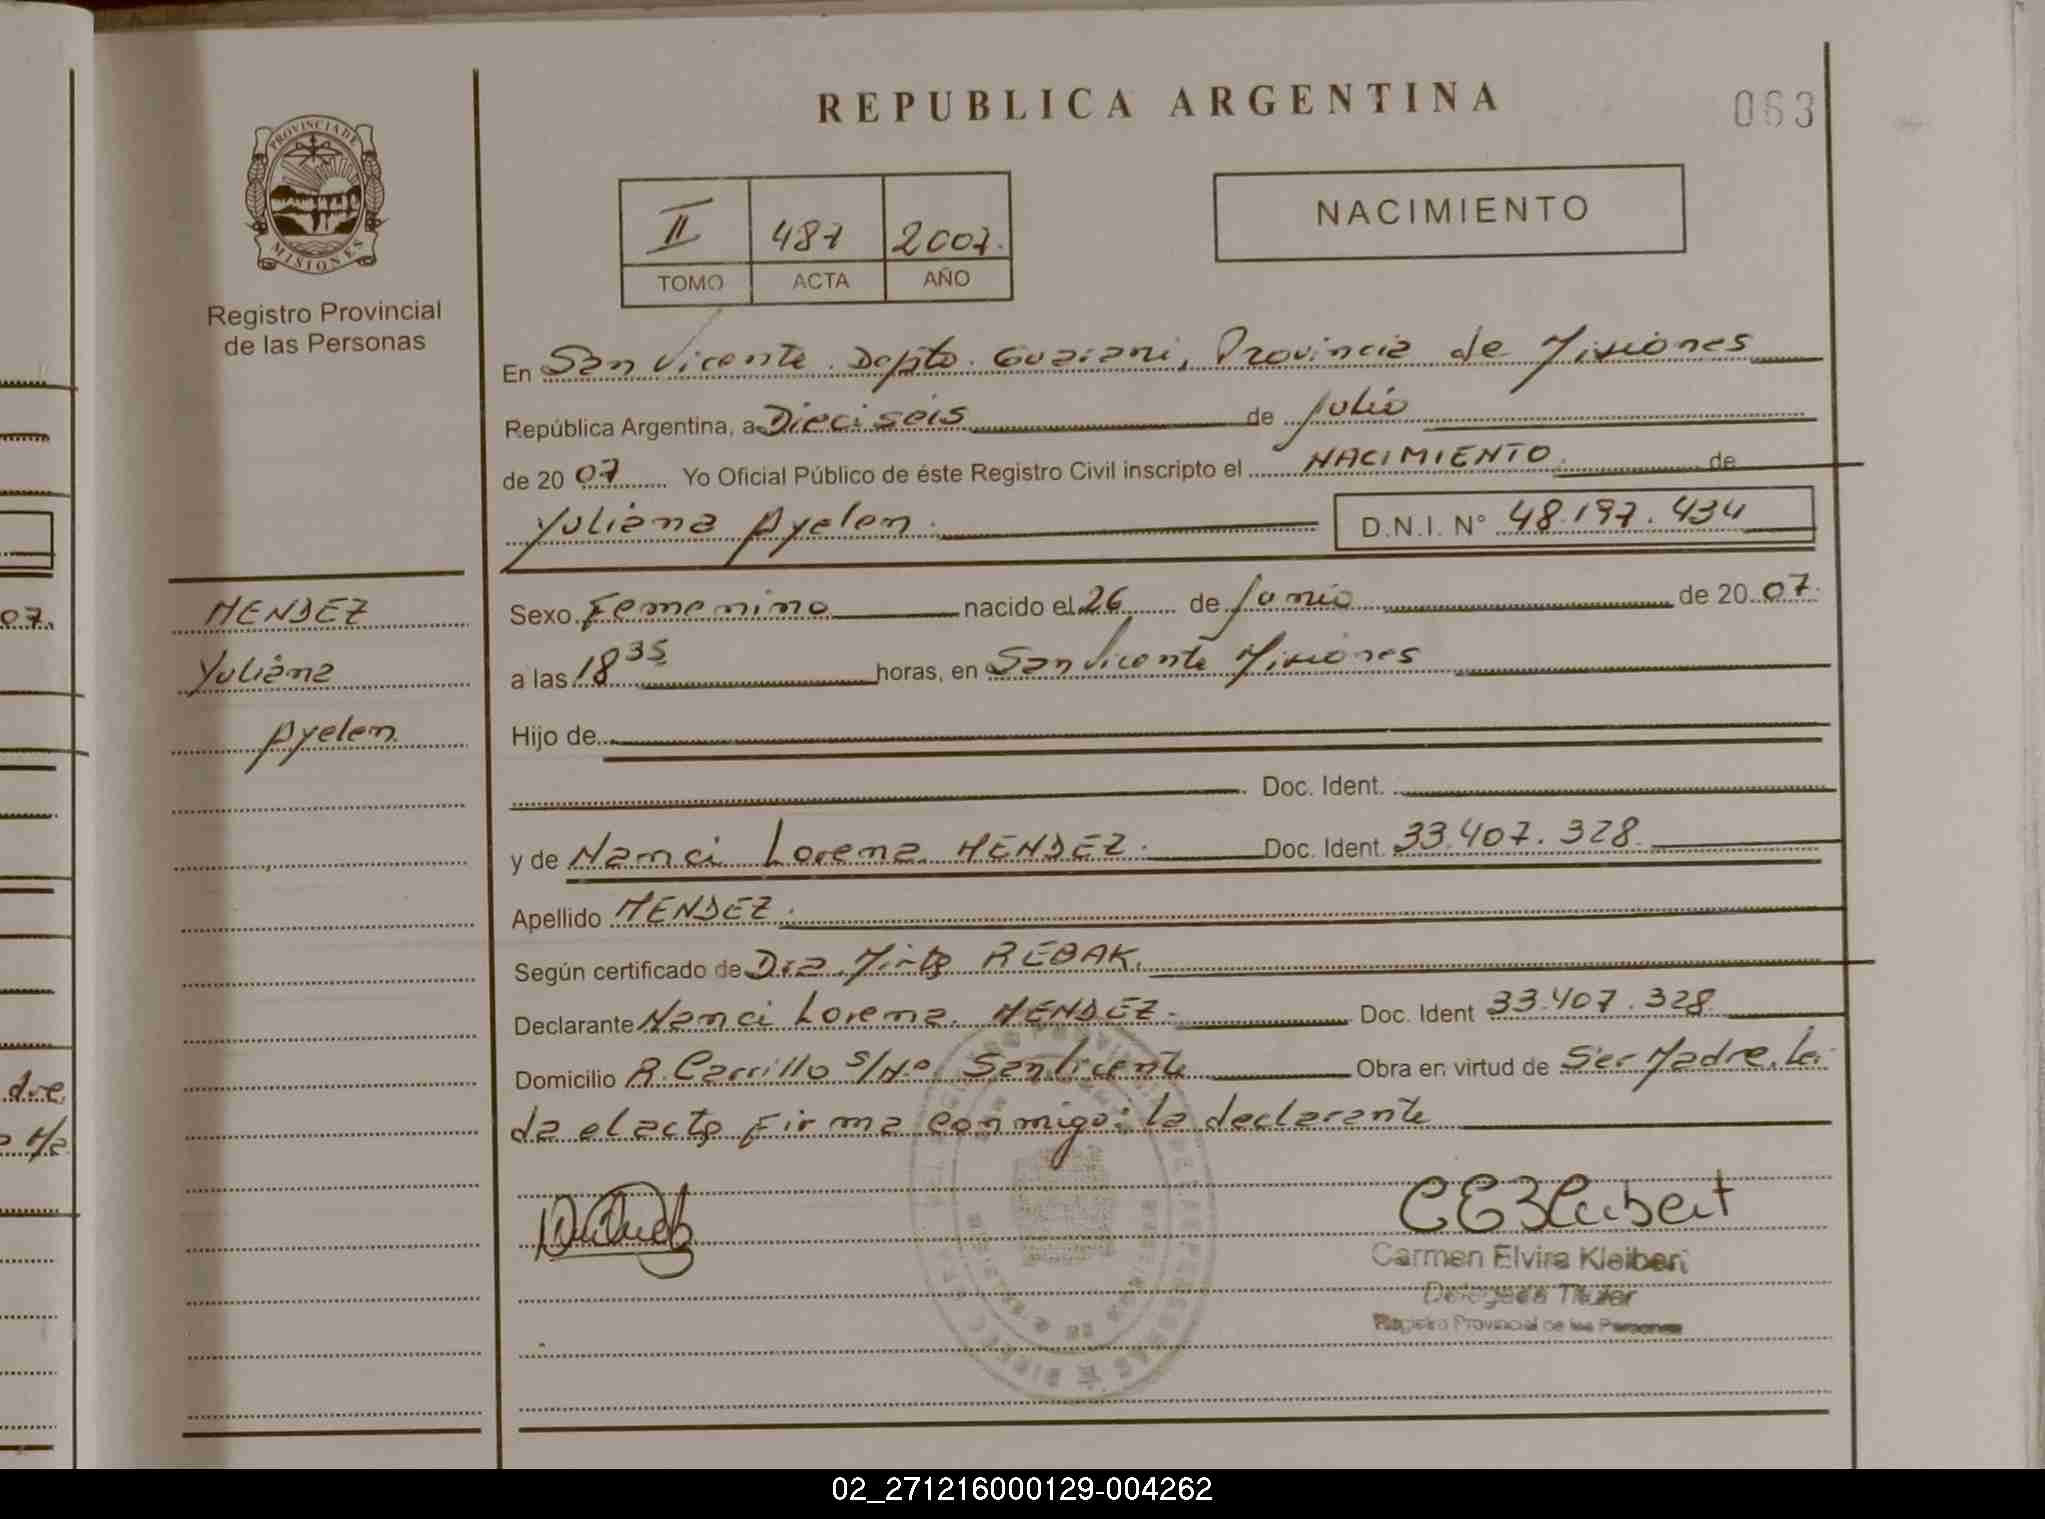 REPUBLICA ARGENTINA
063
PROVINCIA DE
MISIONES
Registro Provincial
de las Personas
II 487 2007.
TOMO ACTA AÑO
NACIMIENTO
En San Vicente. Depto. Guarani, Provincia de Misiones
República Argentina, a Dieciseis de Julio
de 2007 Yo Oficial Público de éste Registro Civil inscripto el NACIMIENTO de
Yuliana Ayelen. D.N.I. N° 48.197.434
MENDEZ
Yuliana
Ayelen.
Sexo Femenino nacido el 26 de Junio de 2007.
a las 18 35 horas, en San Vicente Misiones
Hijo de
Doc. Ident.
y de Nanci Lorena MENDEZ. Doc. Ident. 33.407.328.
Apellido MENDEZ.
Según certificado de Dra. Mirta REBAK.
Declarante Nanci Lorena MENDEZ. Doc. Ident 33.407.328
Domicilio R. Carrillo s/Nº San Vicente Obra en virtud de Ser Madre. Lei
da el acta firma conmigo: la declarante
CEKleibert
Carmen Elvira Kleibert
Delegada Titular
Registro Provincial de las Personas
07.
dre.
02_271216000129-004262